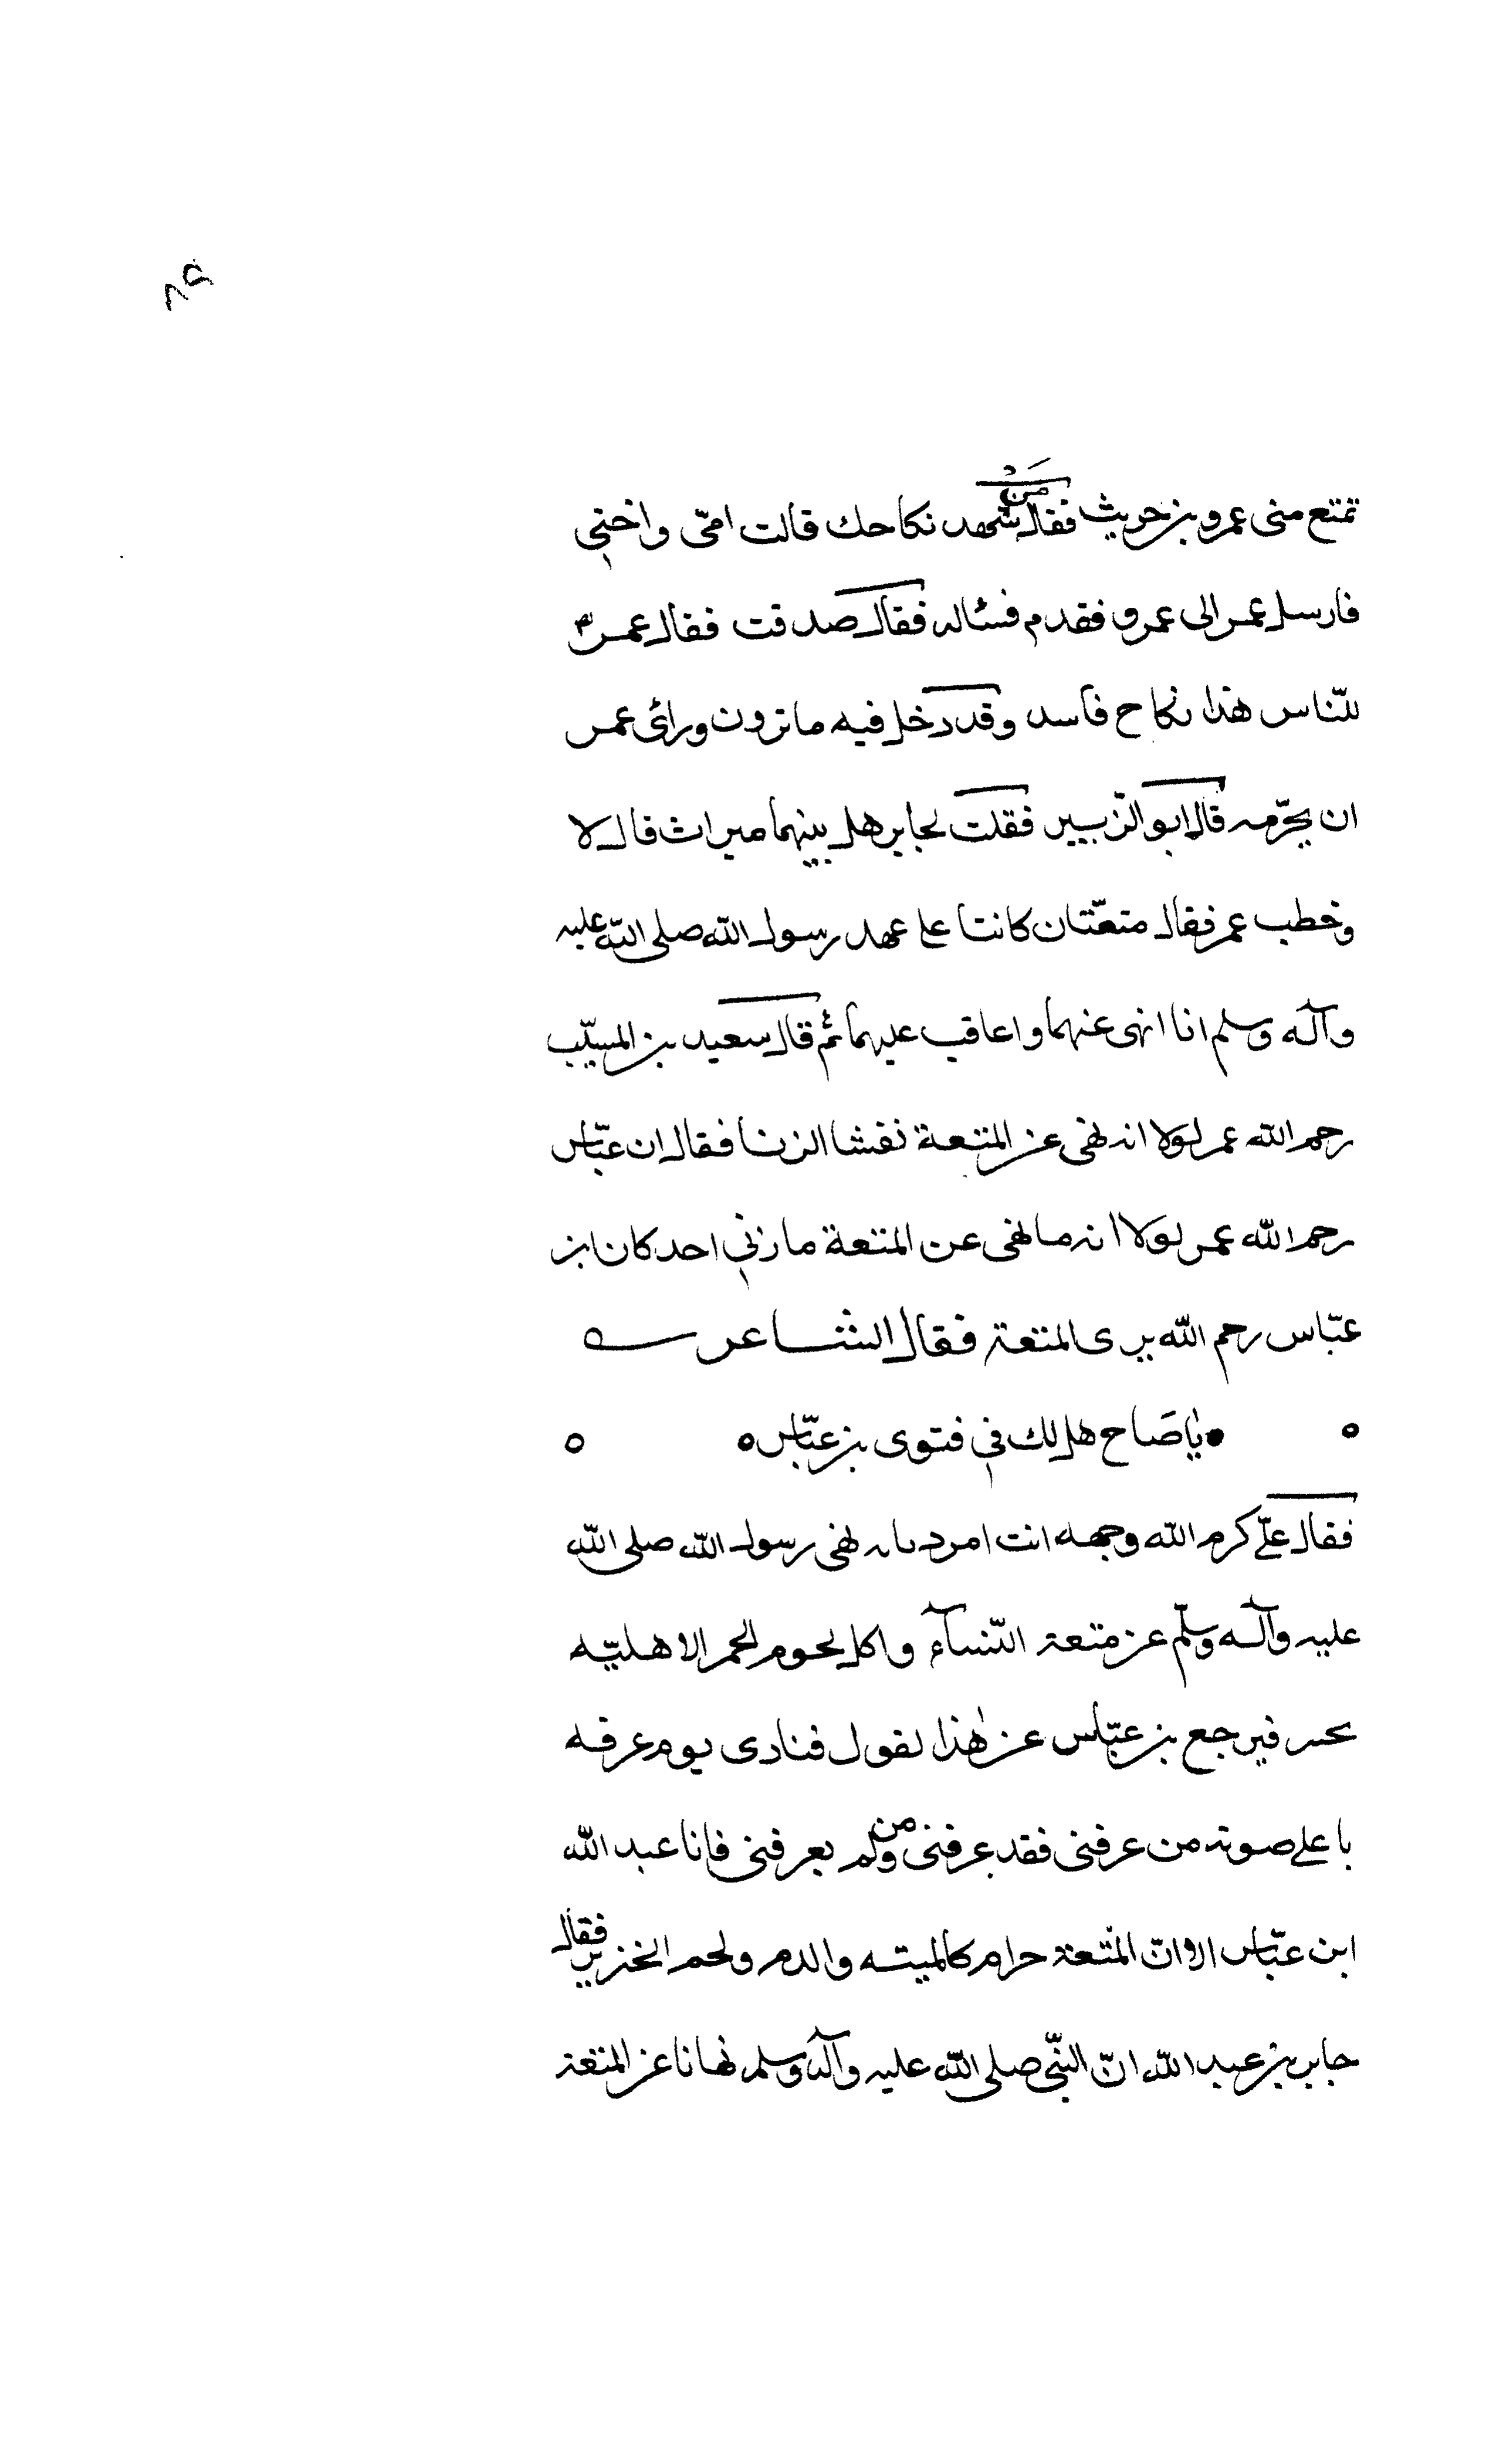 تمتع منى عمرو بن حريث فقال من شهد نكاحك قالت امّى واختى
فارسل عمر الى عمرو فقدم فسئاله فقال صدقت فقال عمر
للنّاس هذا نكاح فاسد وقد دخل فيه ما ترون وراى عمر
ان يحرّمه قال ابو الزّبير فقلت لجابر هل بينهما ميراث قال لا
وخطب عمر فقال متعّتان كانتا على عهد رسول الله صلى الله عليه
وآله وسلم انا انهى عنهما واعاقب عليهما ثم قال سعيد بن المسيّب
رحم الله عمر لولا انه نهى عن المتعة نفشا الزنا فقال ابن عبّاس
رحم الله عمر لولا انه ما نهى عن المتعة ما زنى احد كان ابن
عبّاس رحم الله يرى المتعة فقال الشاعر
ياصَاح هل لك فى فتوى بن عبّاس
فقال علّى كرم الله وجهه انت امرد نهى رسول الله صلى الله
عليه وآله وسلّم عن متعة النّساء واكل لحوم الحمر الاهليّه
فيرجع بن عبّاس عن هٰذا لقول فنادى يوم عرفه
باعلى صوته من عرفنى فقد عرفنى ومن لم يعرفنى فانا عبد الله
ابن عبّاس الا وانّ المتعة حرام كالميته والدم ولحم الخنزير فقال
جابر بن عبد الله انّ النبّى صلى الله عليه وآله وسلم نهانا عن المتعة